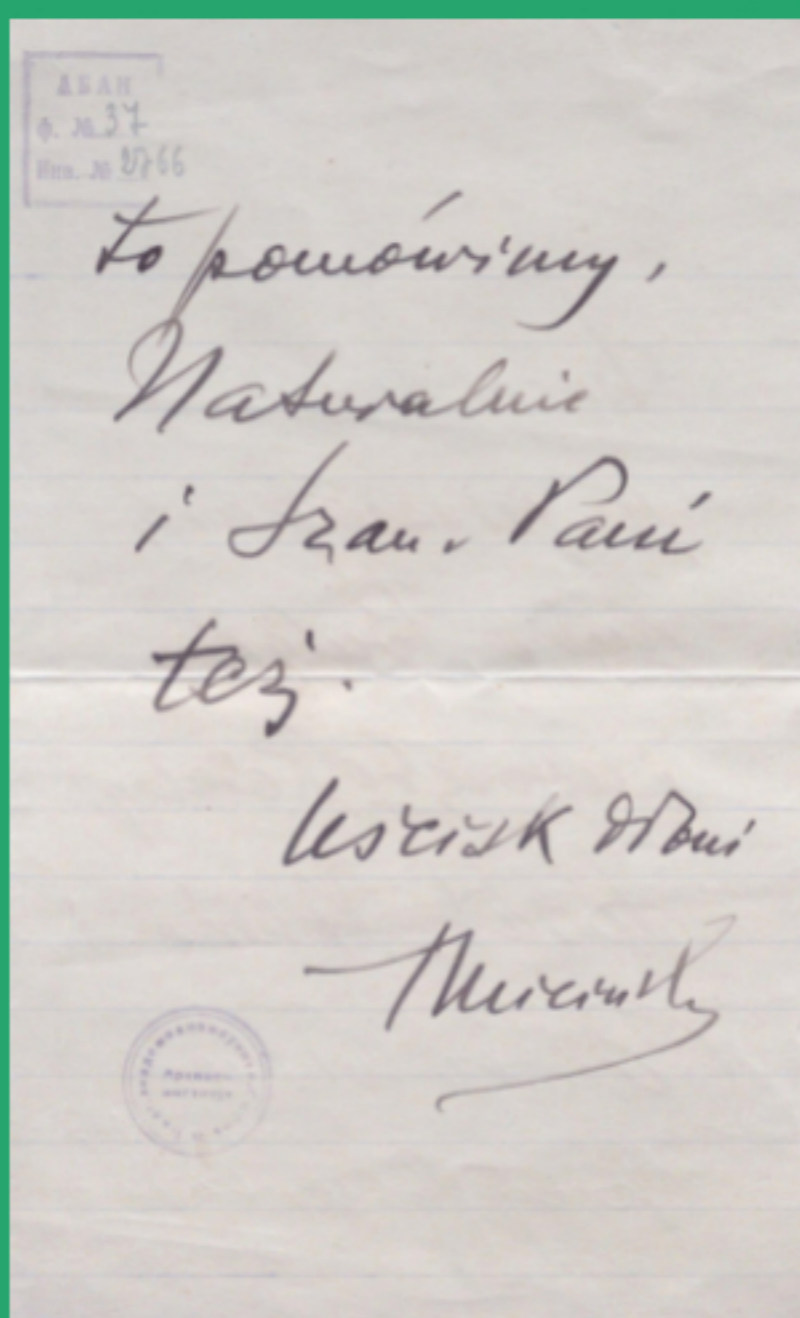 АБАН
ф. № 37
Инв. № 2766
to pomówimy,
Naturalnie
i Szan. Pani
też.
Uścisk dłoni
TMiciński